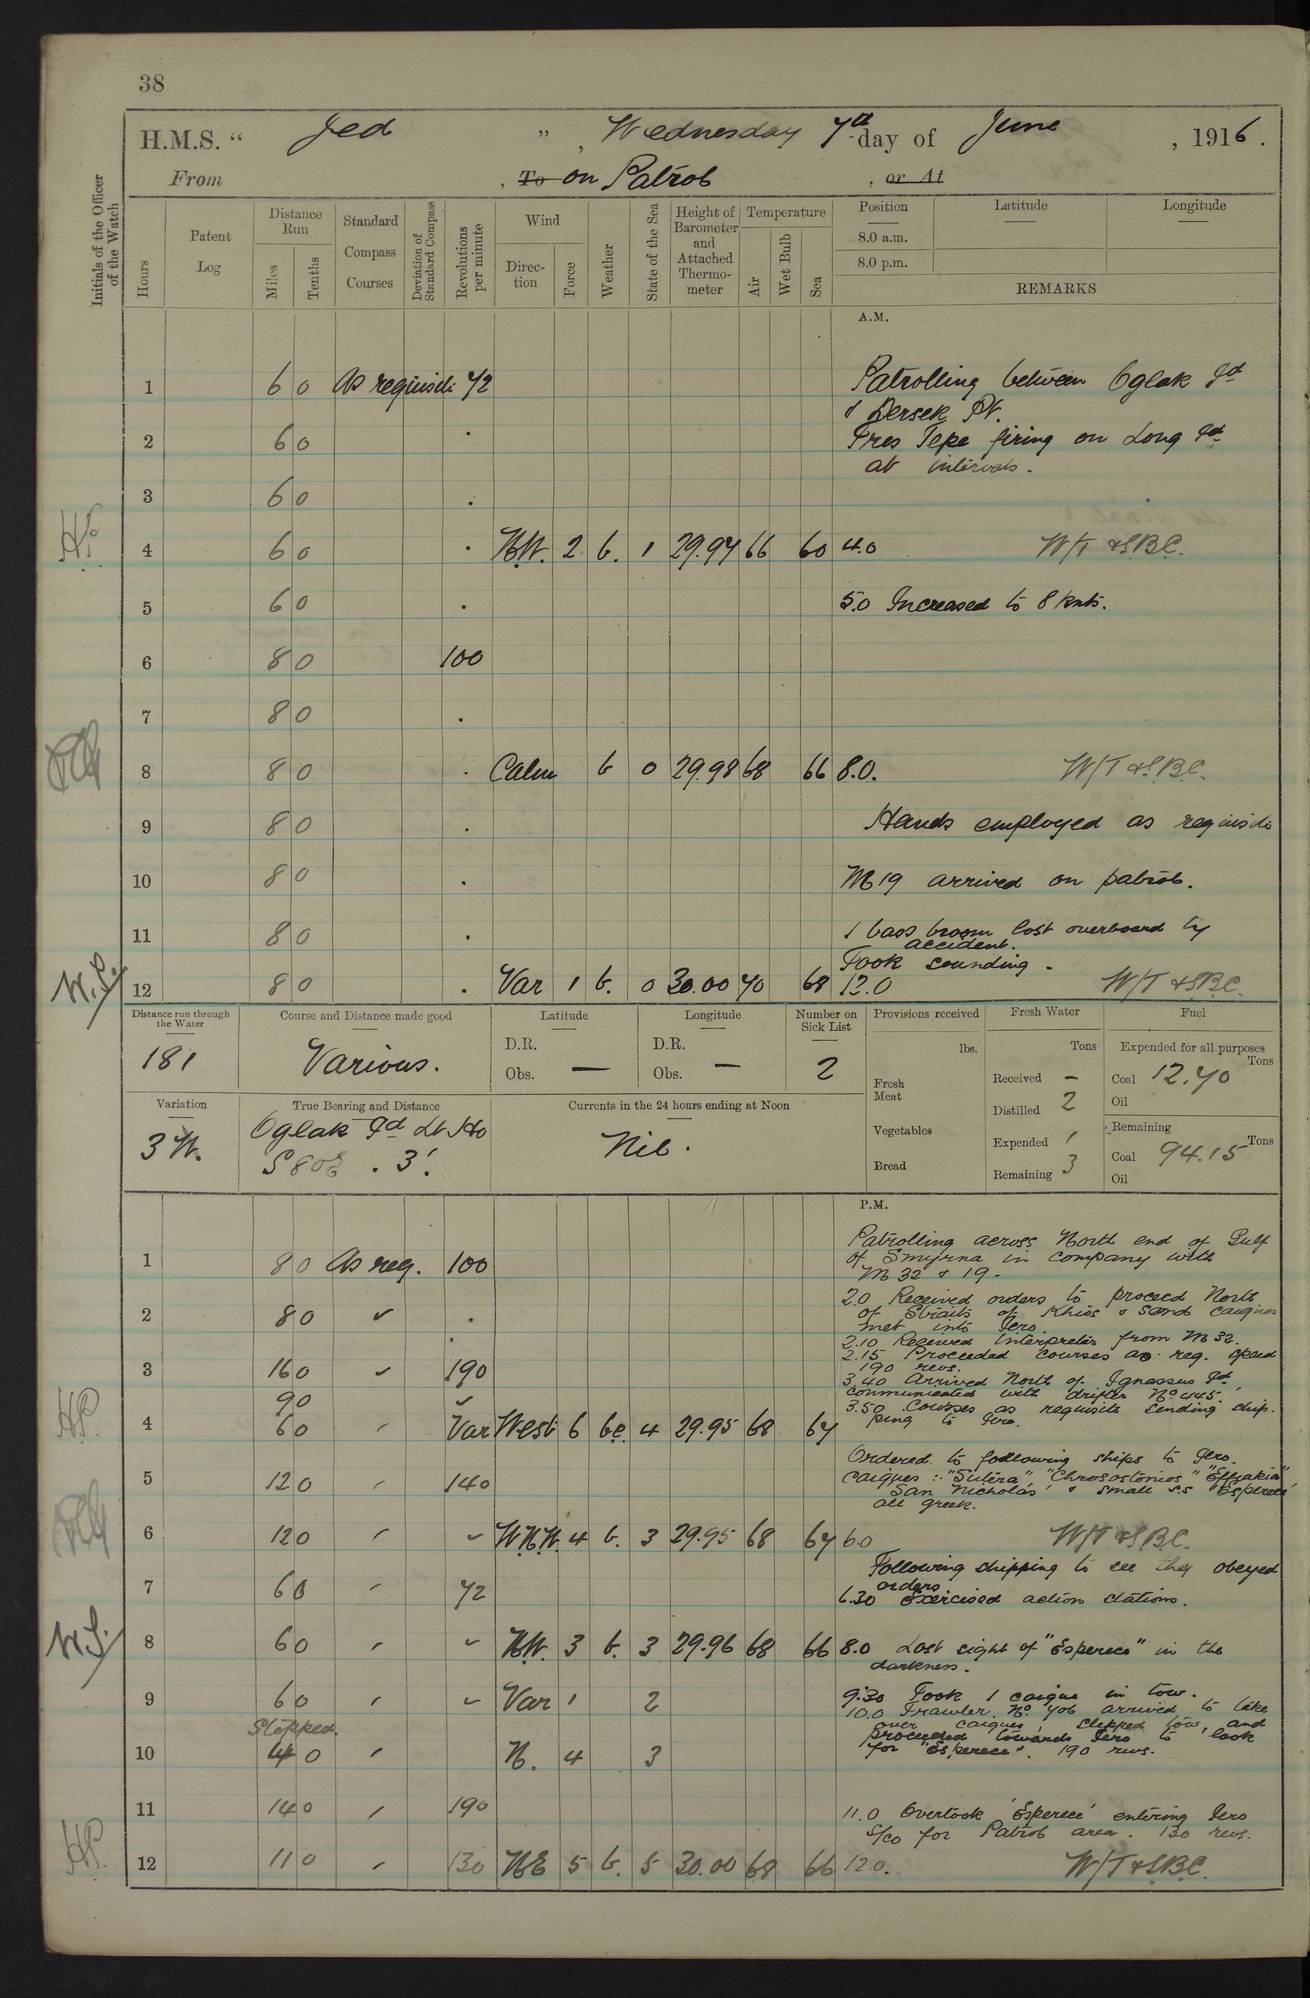 38
H.M.S. “ Jed ” , Wednesday 7th day of June , 1916 .
From , To on Patrol , or At
Initials of the Officer of the Watch
Hours
Patent Log
Distance Run
Miles
Tenths
Standard Compass Courses
Deviation of Standard Compass
Revolutions per minute
Wind
Direction
Force
Weather
State of the Sea
Height of Barometer and Attached Thermometer
Temperature
Air
Wet Bulb
Sea
Position
Latitude
Longitude
8.0 a.m.
8.0 p.m.
REMARKS
A.M.
1 6 0 As requisite 72 Patrolling between Oglak Id
& Dersek Pt.
2 6 0 . Tres Tepe firing on Long Id
at intervals.
3 6 0 .
4 6 0 . N.W. 2 b. 1 29.97 66 60 4.0 W/T & S.B.C.
H.P.
5 6 0 . 5.0 Increased to 8 knts.
6 8 0 100
7 8 0 .
8 8 0 . Calm b 0 29.98 68 66 8.0. W/T & S.B.C.
9 8 0 . Hands employed as requisite
10 8 0 . M19 arrived on patrol.
11 8 0 . 1 bass broom lost overboard by
accident.
Took sounding.
12 8 0 . Var 1 b. 0 30.00 70 68 12.0 W/T & S.B.C.
W.S.
Distance run through the Water
181
Course and Distance made good
Various.
Latitude
D.R.
Obs. —
Longitude
D.R.
Obs. —
Number on Sick List
2
Provisions received
lbs.
Fresh Meat
Vegetables
Bread
Fresh Water
Tons
Received —
Distilled 2
Expended 1
Remaining 3
Fuel
Expended for all purposes
Tons
Coal 12.70
Oil
Remaining
Tons
Coal 94.15
Oil
Variation
3 W.
True Bearing and Distance
Oglak Id Lt Ho
S 80 E . 3'.
Currents in the 24 hours ending at Noon
Nil.
P.M.
1 8 0 As req. 100 Patrolling across North end of Gulf
of Smyrna in company with
M 32 & 19.
2.0 Received orders to proceed North
2 8 0 ✓ . of Straits of Khios & send caiques
met into Iero.
2.10 Received Interpreter from M 32.
2.15 Proceeded courses as req. speed
3 16 0 ✓ 190 190 revs.
3.40 Arrived North of Ignassus Id,
9 0 ✓ communicated with drifter No 445.
3.50 Courses as requisite sending ship-
4 6 0 ✓ Var West 6 bc. 4 29.95 68 67 ping to Iero.
H.P.
Ordered to following ships to Iero.
5 12 0 ✓ 140 caiques :- "Sutera", "Chrosostomos" "Effrakia"
"San Nicholas" & small S.S "Esperece"
all greek.
6 12 0 ✓ ✓ W.N.W. 4 b. 3 29.95 68 67 6.0 W/T & S.B.C.
Following shipping to see they obeyed
7 6 0 ✓ 72 orders
6.30 Exercised action stations.
8 6 0 ✓ ✓ N.W. 3 b. 3 29.96 68 66 8.0 Lost sight of "Esperece" in the
darkness.
W.S.
9 6 0 ✓ ✓ Var 1 2 9.30 Took 1 caique in tow.
10.0 Trawler No 706 arrived to take
Stopped. over caiques, slipped tow, and
proceeded towards Iero to look
10 4 0 ✓ N. 4 3 for "Esperece". 190 revs.
11 14 0 ✓ 190 11.0 Overtook 'Esperece' entering Iero
S/co for Patrol area. 130 revs.
12 11 0 ✓ 130 NE 5 b. 5 30.00 68 66 12.0. W/T & S.B.C.
H.P.